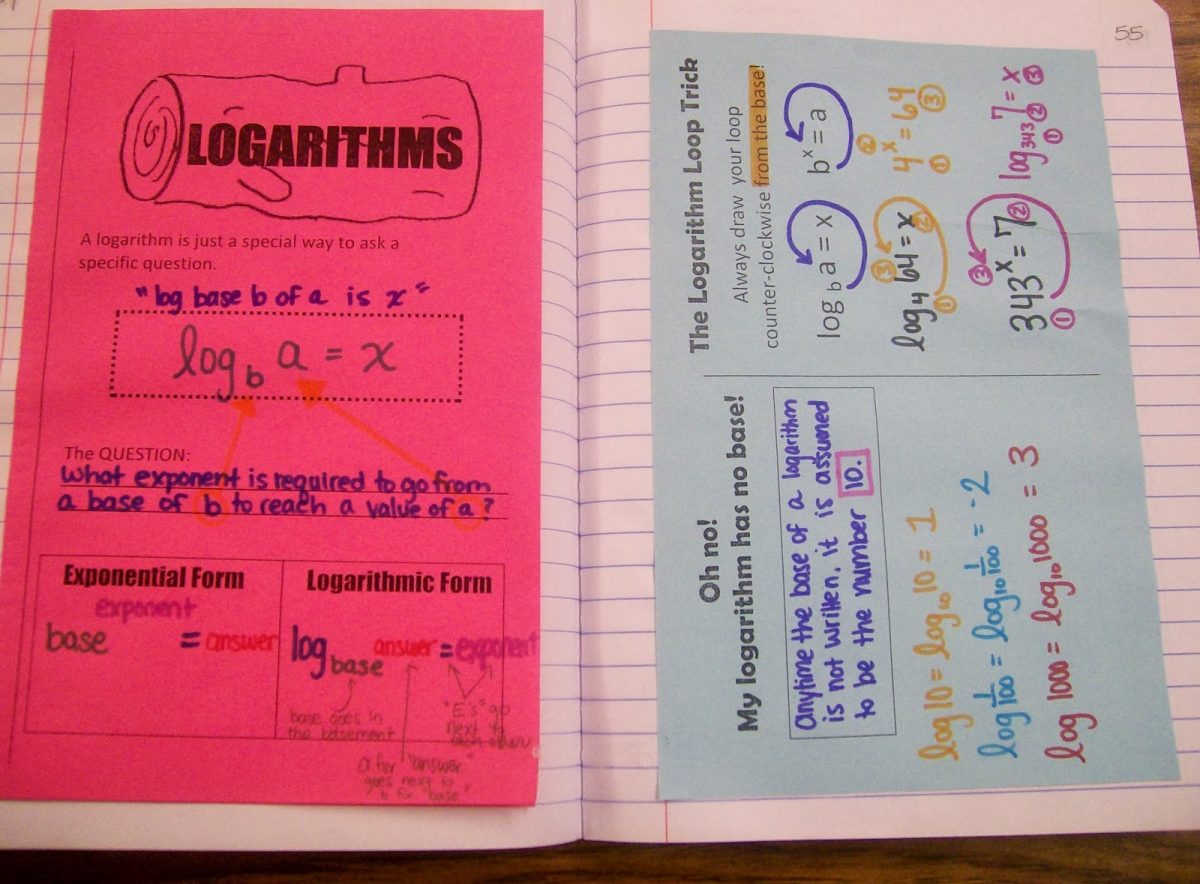 LOGARITHMS
A logarithm is just a special way to ask a
specific question.
"log base b of a is x"
log_b a = x
The QUESTION:
What exponent is required to go from
a base of b to reach a value of a?
Exponential Form
base^exponent = answer
Logarithmic Form
log_base answer = exponent
base goes in
the basement
"E's" go
next to
each other
a for "answer"
goes next to
b for "base"
55
Oh no!
My logarithm has no base!
anytime the base of a logarithm
is not written, it is assumed
to be the number 10.
log 10 = log₁₀ 10 = 1
log 1/100 = log₁₀ 1/100 = -2
log 1000 = log₁₀ 1000 = 3
The Logarithm Loop Trick
Always draw your loop
counter-clockwise from the base!
log_b a = x b^x = a
log₄ 64 = x 4^x = 64
① ② ③ ① ② ③
343^x = 7 log₃₄₃ 7 = x
① ② ③ ① ② ③